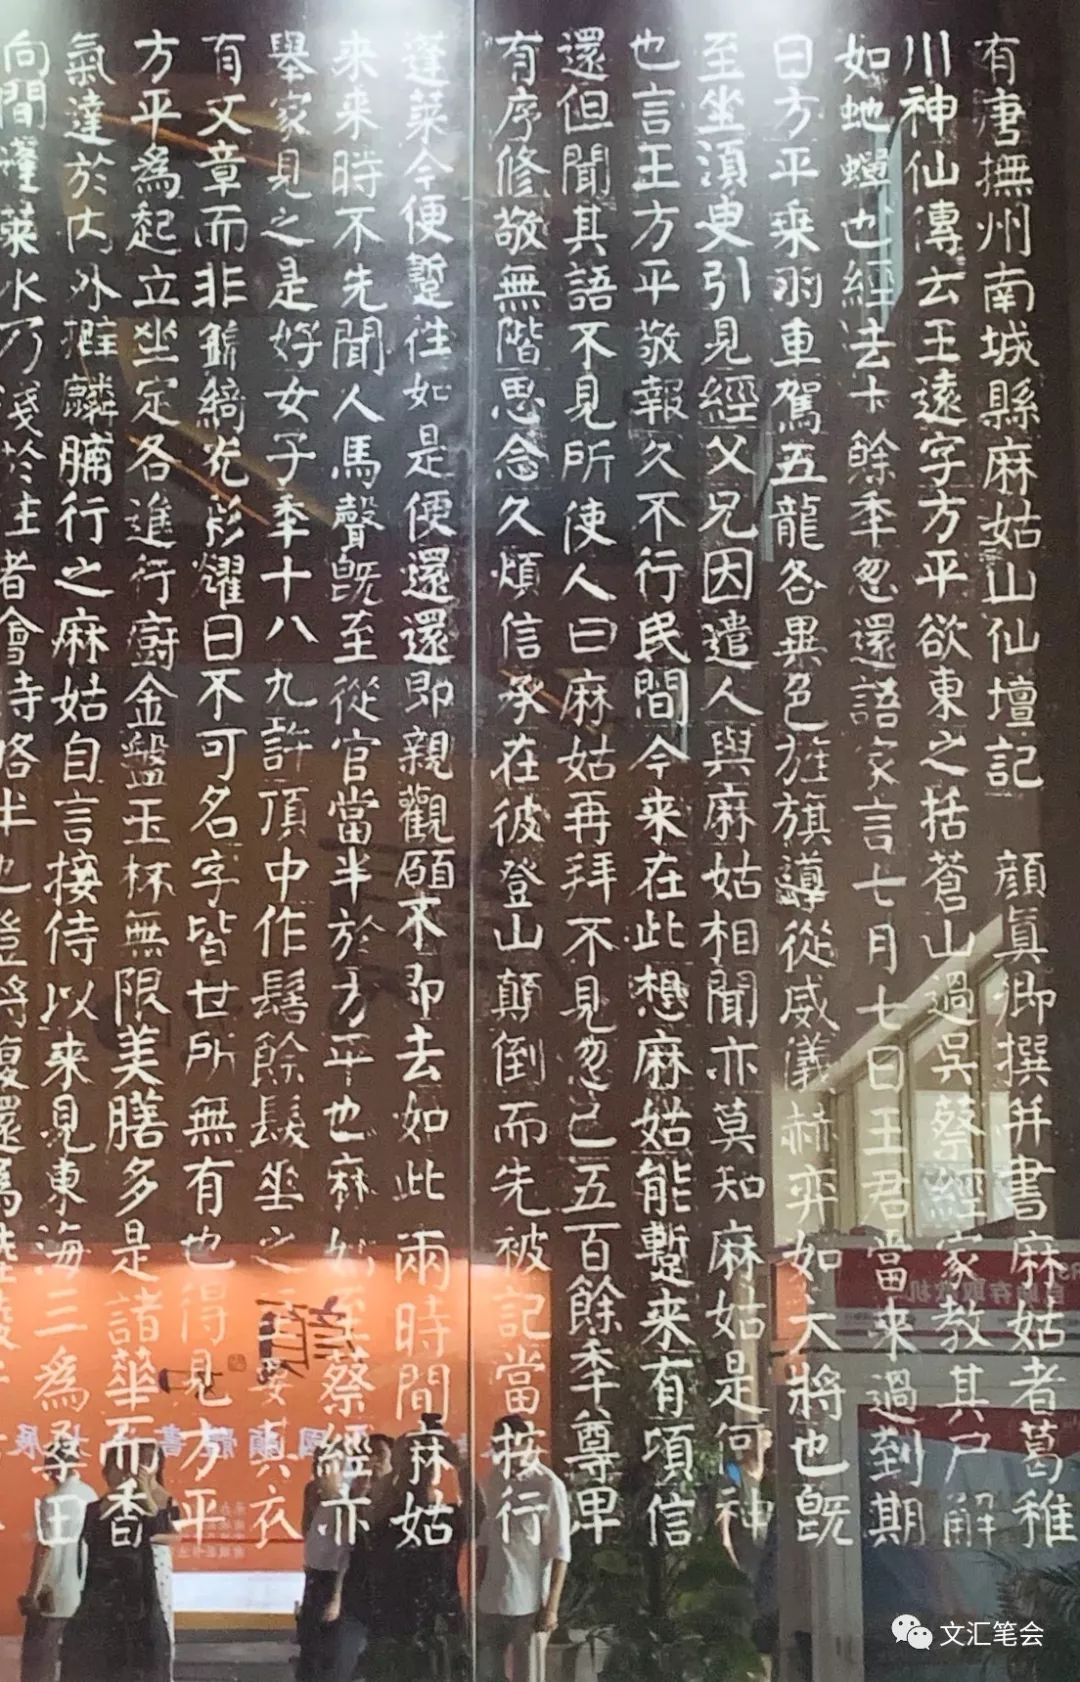 有唐撫州南城縣麻姑山仙壇記 顏眞卿撰并書麻姑者葛稚
川神仙傳云王遠字方平欲東之括蒼山過吳蔡經家教其尸解
如虵蟬也經去十餘年忽還語家言七月七日王君當來過到期
日方平乘羽車駕五龍各異色旌旗導從威儀赫弈如大將也旣
至坐須臾引見經父兄因遣人與麻姑相聞亦莫知麻姑是何神
也言王方平敬報久不行民間今来在此想麻姑能蹔来有頃信
還但聞其語不見所使人曰麻姑再拜不見忽已五百餘年尊卑
有序修敬無階思念久煩信承在彼登山顛倒而先被記當按行
蓬萊今便蹔往如是便還還即親觀願不即去如此兩時間麻姑
来来時不先聞人馬聲旣至從官當半於方平也麻姑至蔡經亦
舉家見之是好女子年十八九許頂中作髻餘髮坐之至要其衣
有文章而非錦綺光彩耀日不可名字皆世所無有也得見方平
方平爲起立坐定各進行廚金盤玉杯無限美膳多是諸華而香
氣達於內外擗麟脯行之麻姑自言接待以来見東海三爲桑田
向間蓬萊水乃淺於往者會時略半也豈將復還爲陸陵
自助存取款机
文汇笔会